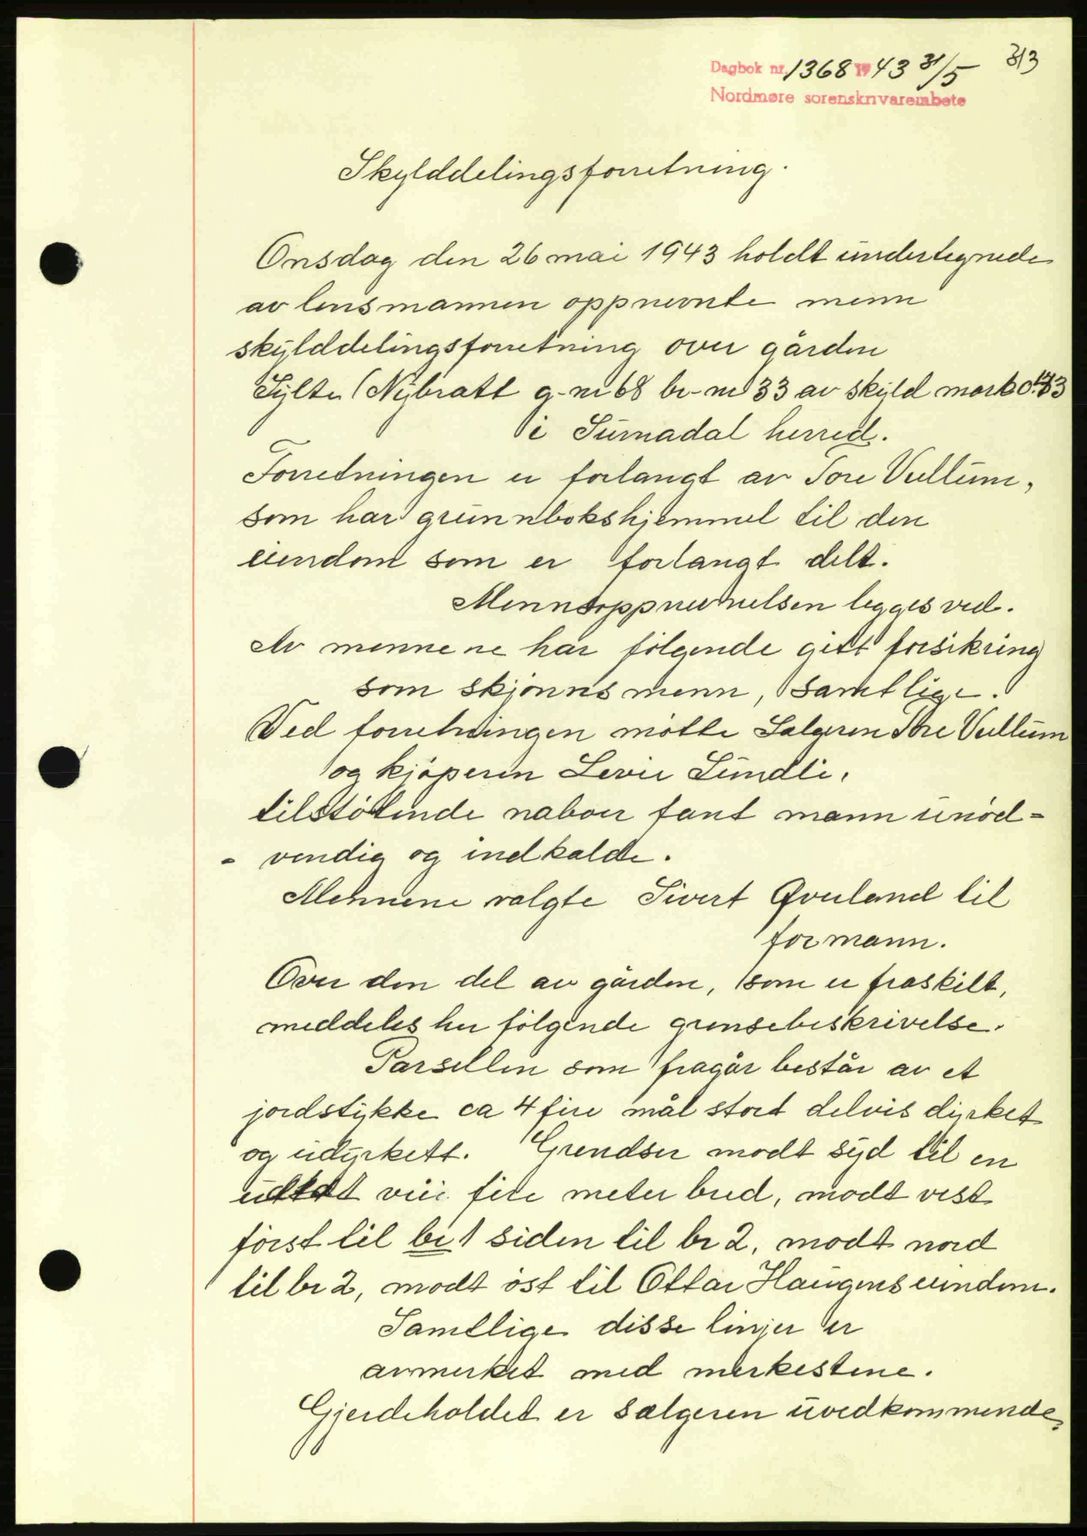 313
Dagbok nr. 1368 1943 31/5
Nordmøre sorenskrivarembete
Skylddelingsforretning.
Onsdag den 26 mai 1943 holdt undertegnede
av lensmannen oppnevnte menn
skylddelingsforretning over gården
Sylte (Nybrått g-nr 68 br-nr 33 av skyld mark
i Surnadal herred.
Forretningen er forlangt av Tore Vullum,
som har grunnbokshjemmel til den
eiendom som er forlangt delt.
Mennsoppnevnelsen legges ved.
Av mennene har følgende gitt forsikring
som skjønnsmenn, samtlige.
Ved forretningen møtte Selgeren Tore Vullum
og kjøperen Levir Sundli.
tilstøtende naboer fant mann unød-
- vendig og indkalde.
Mennene valgte Sivert Øverland til
formann.
Over den del av gården, som er fraskilt,
meddeles her følgende grensebeskrivelse.
Parsellen som fragår består av et
jordstykke ca 4 fire mål stort delvis dyrket
og udyrkett. Grendser modt syd til en
vei fire meter bred, modt vest
først til br 1 siden til br 2, modt nord
til br 2, modt øst til Ottar Haugens eiendom.
Samtlige disse linjer er
avmerket med merkestene.
Gjerdeholdet er selgeren uvedkommende,